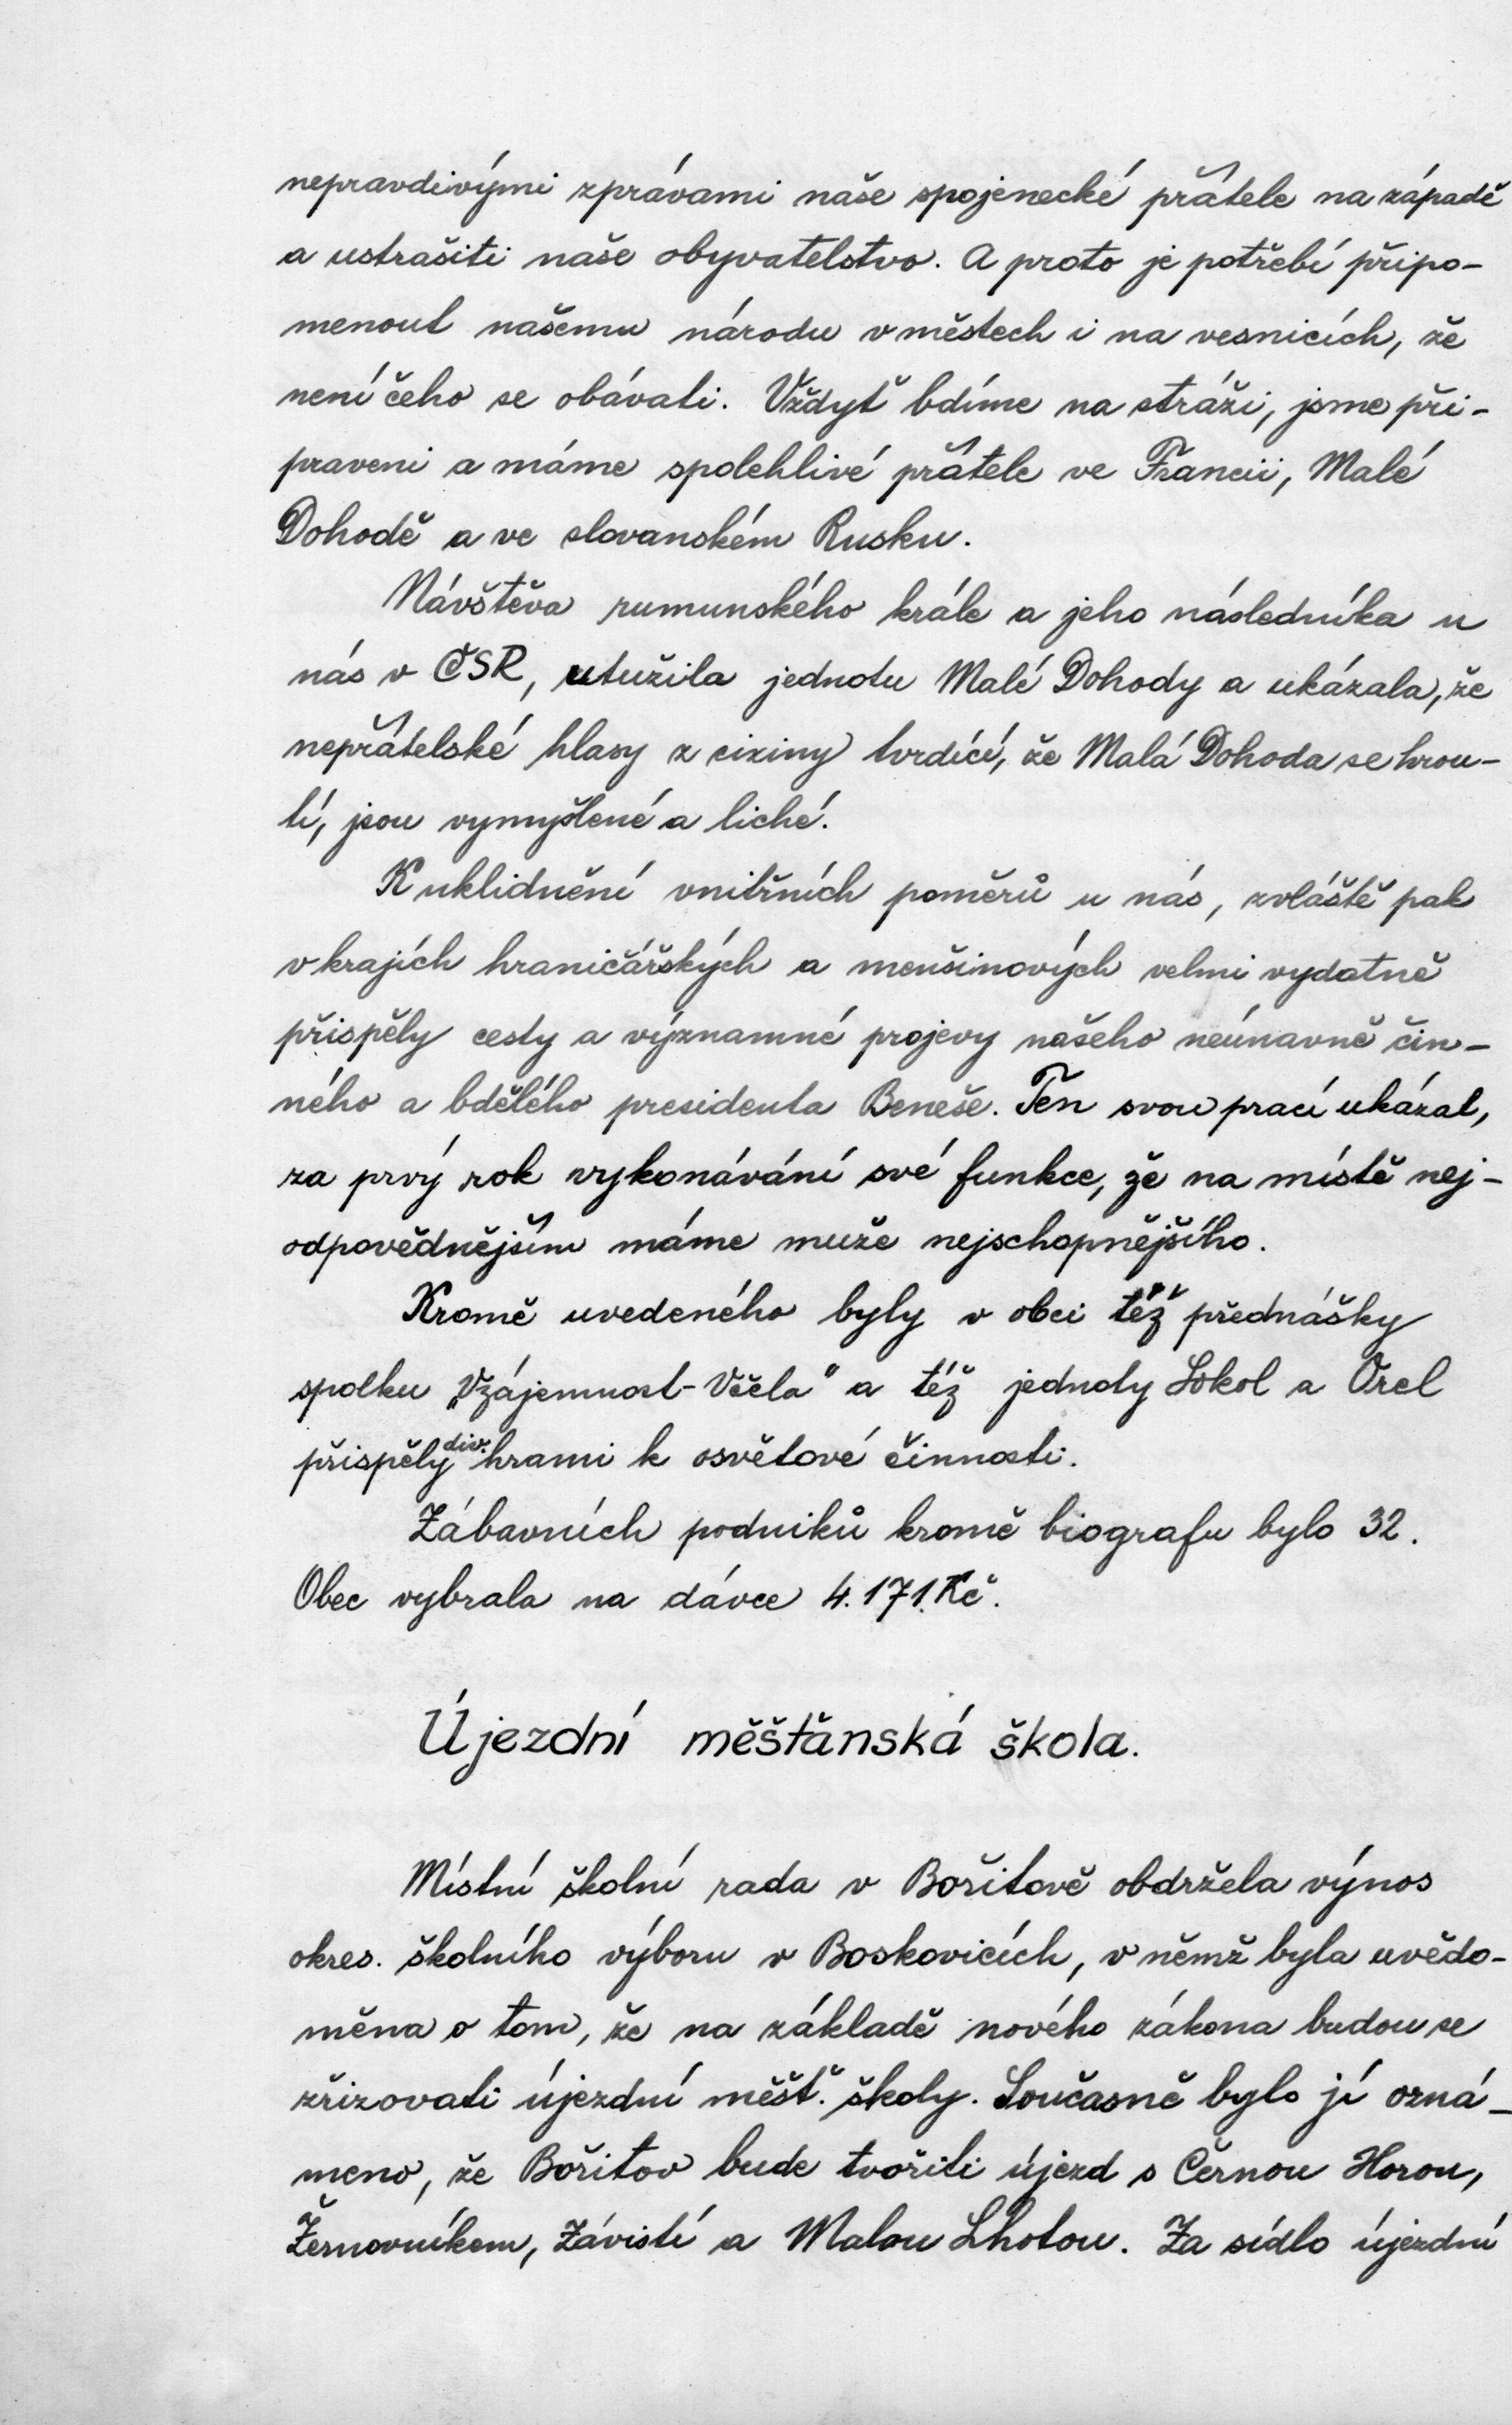 nepravdivými zprávami naše spojenecké přátele na západě
a ustrašiti naše obyvatelstvo. A proto je potřebí připo-
menout našemu národu v městech i na vesnicích, že
není čeho se obávati. Vždyť bdíme na stráži, jsme při-
praveni a máme spolehlivé přátele ve Francii, Malé
Dohodě a ve slovanském Rusku.
Návštěva rumunského krále a jeho následníka u
nás v ČSR, utužila jednotu Malé Dohody a ukázala, že
nepřátelské hlasy z ciziny tvrdící, že Malá Dohoda se hrou-
tí, jsou vymyšlené a liché.
K uklidnění vnitřních poměrů u nás, zvláště pak
v krajích hraničářských a menšinových velmi vydatně
přispěly cesty a významné projevy našeho neúnavně čin-
ného a bdělého presidenta Beneše. Ten svou prací ukázal,
za prvý rok vykonávání své funkce, že na místě nej-
odpovědnějším máme muže nejschopnějšího.
Kromě uvedeného byly v obci též přednášky
spolku „Vzájemnost-Včela" a též jednoty Sokol a Orel
přispěly div. hrami k osvětové činnosti.
Zábavních podniků kromě biografu bylo 32.
Obec vybrala na dávce 4.171 Kč.
Újezdní měšťanská škola.
Místní školní rada v Bořitově obdržela výnos
okres. školního výboru v Boskovicích, v němž byla uvědo-
měna o tom, že na základě nového zákona budou se
zřizovati újezdní měšť. školy. Současně bylo jí ozná-
meno, že Bořitov bude tvořiti újezd s Černou Horou,
Žernovníkem, Závistí a Malou Lhotou. Za sídlo újezdní